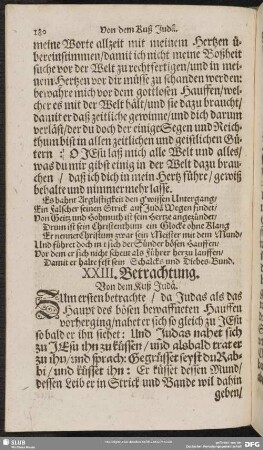 180 Von dem Kuß Judä.
meine Worte allzeit mit meinem Hertzen ü-
bereinstimmen/ damit ich nicht meine Boßheit
suche vor der Welt zu rechtfertigen/ und in mei-
nem Hertzen vor dir müsse zu schanden werden:
bewahre mich vor dem gottlosen Hauffen/ wel-
cher es mit der Welt hält/ und sie dazu braucht/
damit er daß zeitliche gewinne/ und dich darum
verläst/ der du doch der einige Segen und Reich-
thum bist in allen zeitlichen und geistlichen Gü-
tern: O JEsu laß mich alle Welt und alles/
was du mir gibst einig in der Welt dazu brau-
chen/ daß ich dich in mein Hertz führe/ gewiß
behalte und nimmermehr lasse.
Es bahnt Arglistigkeit den g'wissen Untergang/
Ein Falscher seinen Strick auf Judä Wegen findet/
Von Geitz und Hohmuth ist sein Hertze angezündet/
Drum ist sein Christenthum ein Glocke ohne Klang
Er nenne Christum zwar sein Meister mit dem Mund/
Und führet doch in sich der Sünder bösen Hauffen/
Vor dem er sich nicht scheut als Führer her zu lauffen/
Damit er halte fest sein Schalcks und Diebes-Bund.
XXIII. Betrachtung.
Von dem Kuß Judä.
Zum ersten betrachte/ da Judas als das
Haupt des bösen bewaffneten Hauffen
vorherging/ nahet er sich so gleich zu JEsu
so bald er ihn siehet: Und Judas nahet sich
zu JEsu ihn zu küssen/ und alsbald trat er
zu ihn/ und sprach: Gegrüsset seyst du Rab-
bi/ und küsset ihn: Er küsset dessen Mund/
dessen Leib er in Strick und Bande wil dahin
geben/
SLUB
DFG